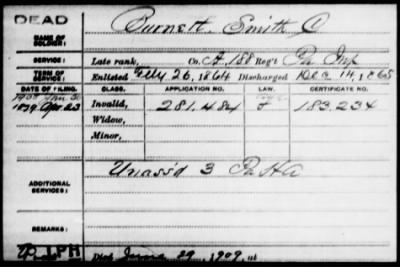 DEAD
NAME OF SOLDIER: Burnett, Smith C
SERVICE: Late rank, Co. A, 188 Reg't Pa Inf
TERM OF SERVICE: Enlisted Feby 26, 1864 Discharged Dec 14, 1865
DATE OF FILING. CLASS. APPLICATION NO. LAW. CERTIFICATE NO.
1879 Apr 23 Invalid, 281.484 183.234
Widow,
Minor,
ADDITIONAL SERVICES: Unass'd 3 Pa H A
REMARKS:
Died June 29, 1909, at